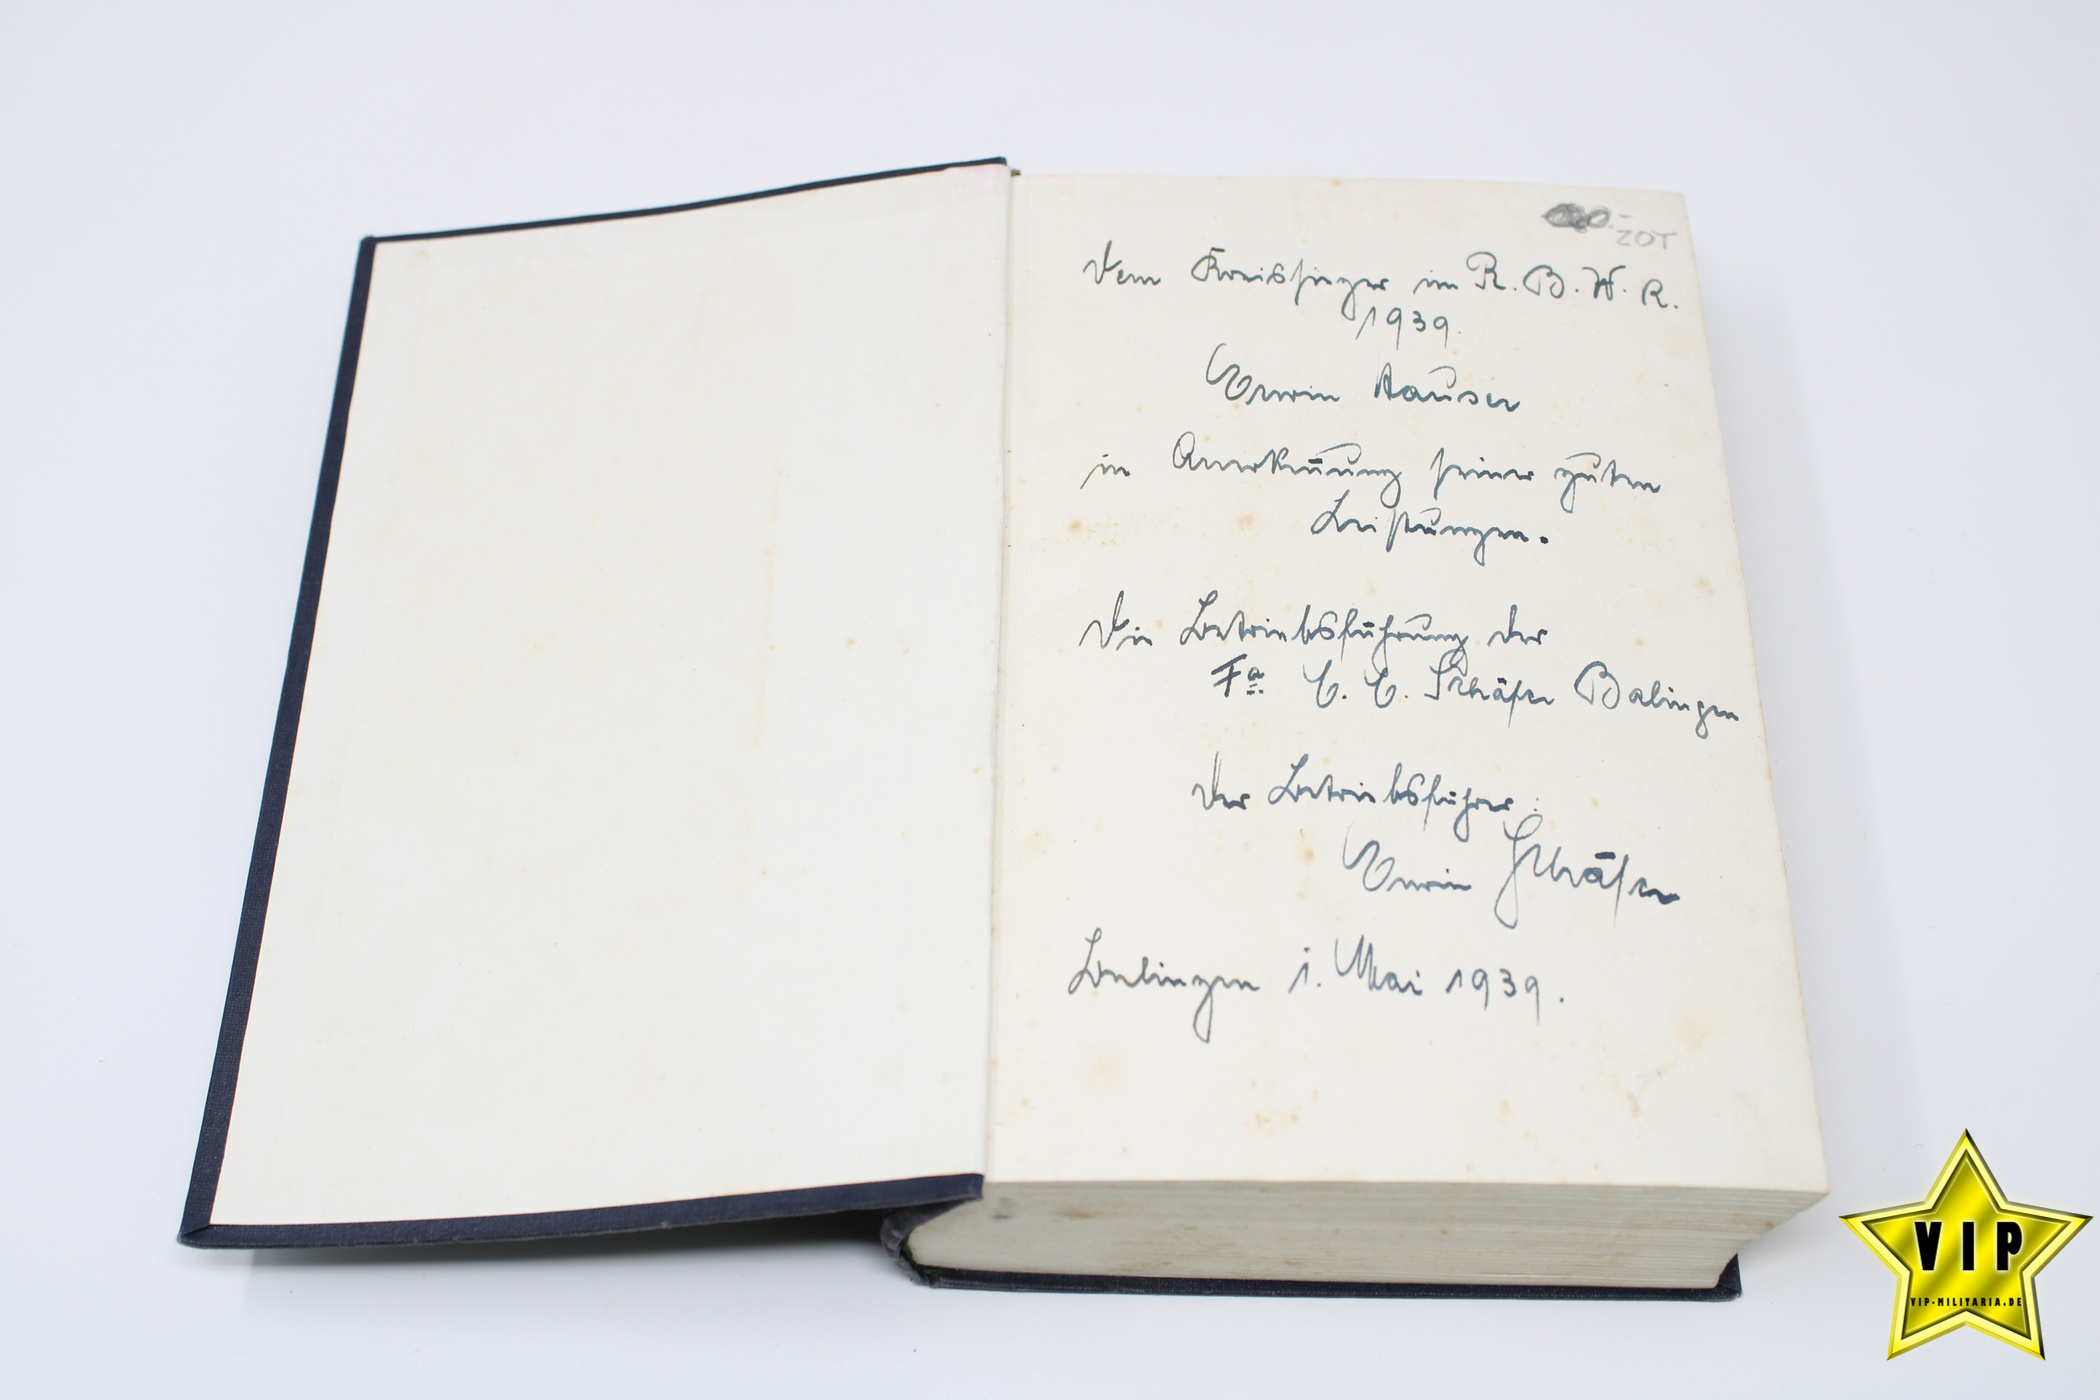 ZOT
Dem Kreissieger im R.B.W.K.
1939.
Erwin Hauser
in Anerkennung seiner guten
Leistungen.
Die Betriebsführung der
Fa C. C. Schäfer Balingen
Der Betriebsführer:
Erwin Schäfer
Balingen 1. Mai 1939.
VIP
VIP-MILITARIA.DE